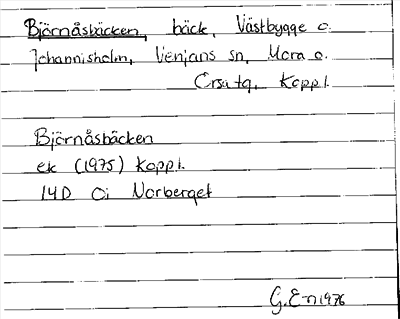 Björnåsbäcken, bäck, Västbygge o.
Johannisholm, Venjans sn, Mora o.
Orsa tg, Koppl.
Björnåsbäcken
ek (1975) Koppl.
14D 0i Norberget
G.E-n 1976